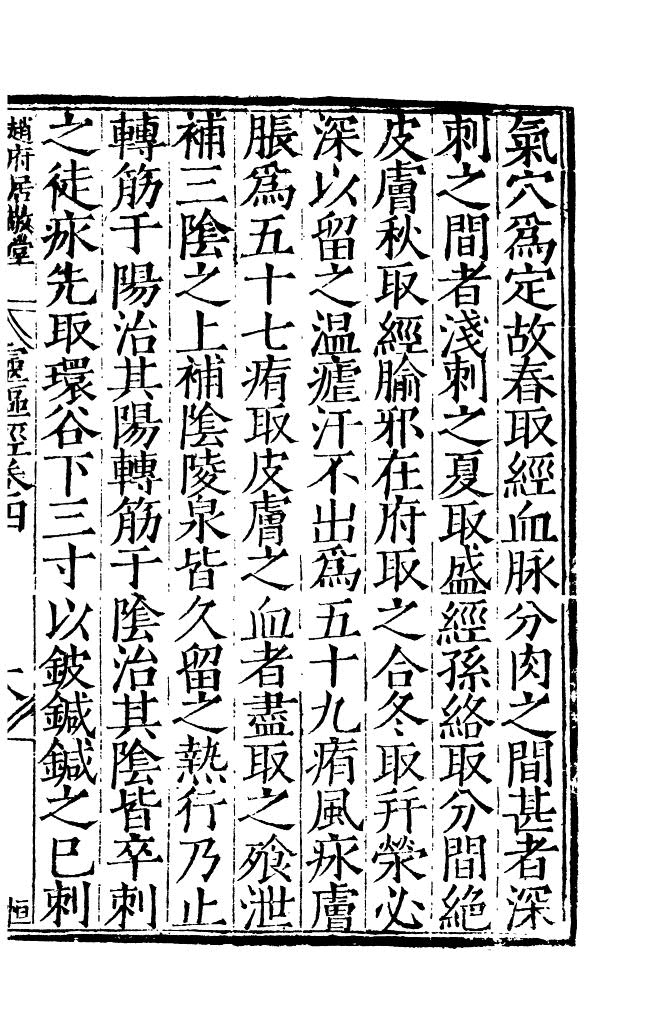 氣穴爲定故春取經血脉分肉之間甚者深
刺之間者淺刺之夏取盛經孫絡取分間絶
皮膚秋取經腧邪在府取之合冬取幷滎必
深以留之温瘧汗不出爲五十九痏風㽷膚
脹爲五十七痏取皮膚之血者盡取之飱泄
補三隂之上補隂陵泉皆久留之熱行乃止
轉筋于陽治其陽轉筋于隂治其隂皆卒刺
之徒㽷先取環谷下三寸以鈹鍼鍼之已刺
趙府居敬堂
靈樞經卷四
恒